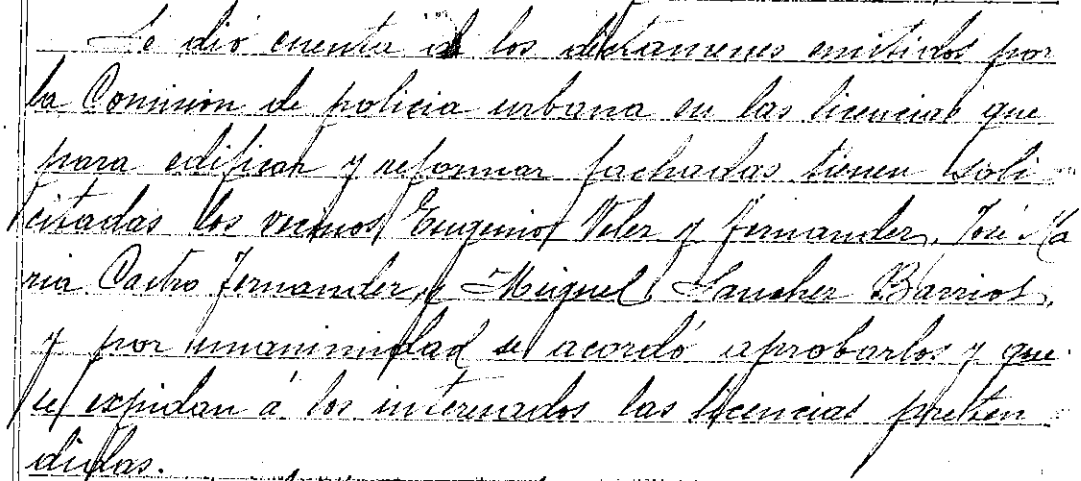 Se dió cuenta de los dictamenes emitidos por
la Comision de policia urbana en las licencias que
para edificar y reformar fachadas tienen soli
citadas los vecinos Eugenio Velez y Fernandez, José Ma
ria Castro Fernandez, y Miguel Sanchez Barrios,
y por unanimidad se acordó aprobarlos y que
se expidan á los interesados las licencias preten
didas.